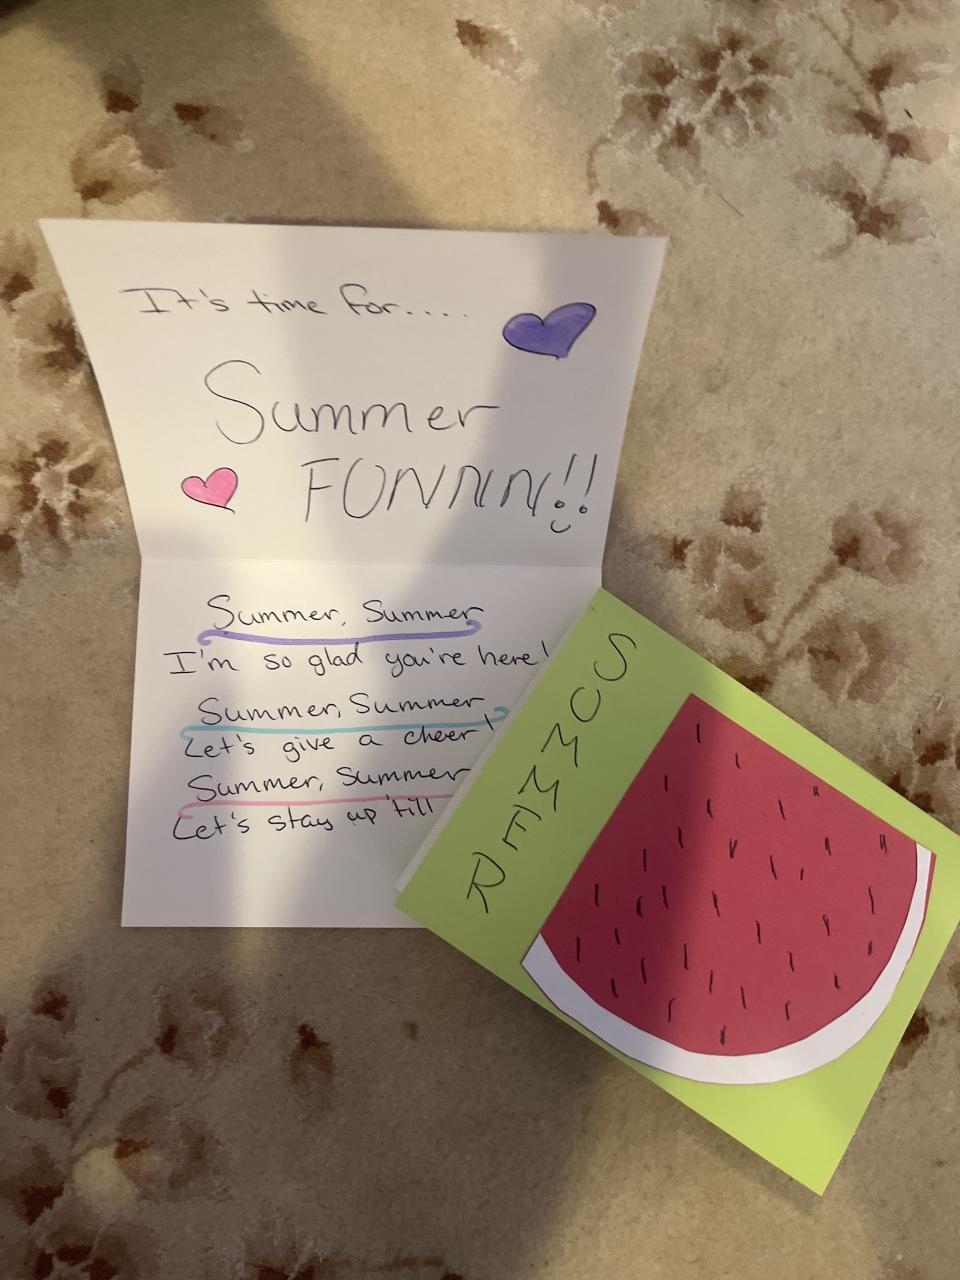 It's time for....
Summer
FUNNNN!!
Summer, Summer
I'm so glad you're here!
Summer, Summer
Let's give a cheer!
Summer, Summer
Let's stay up 'till
SUMMER